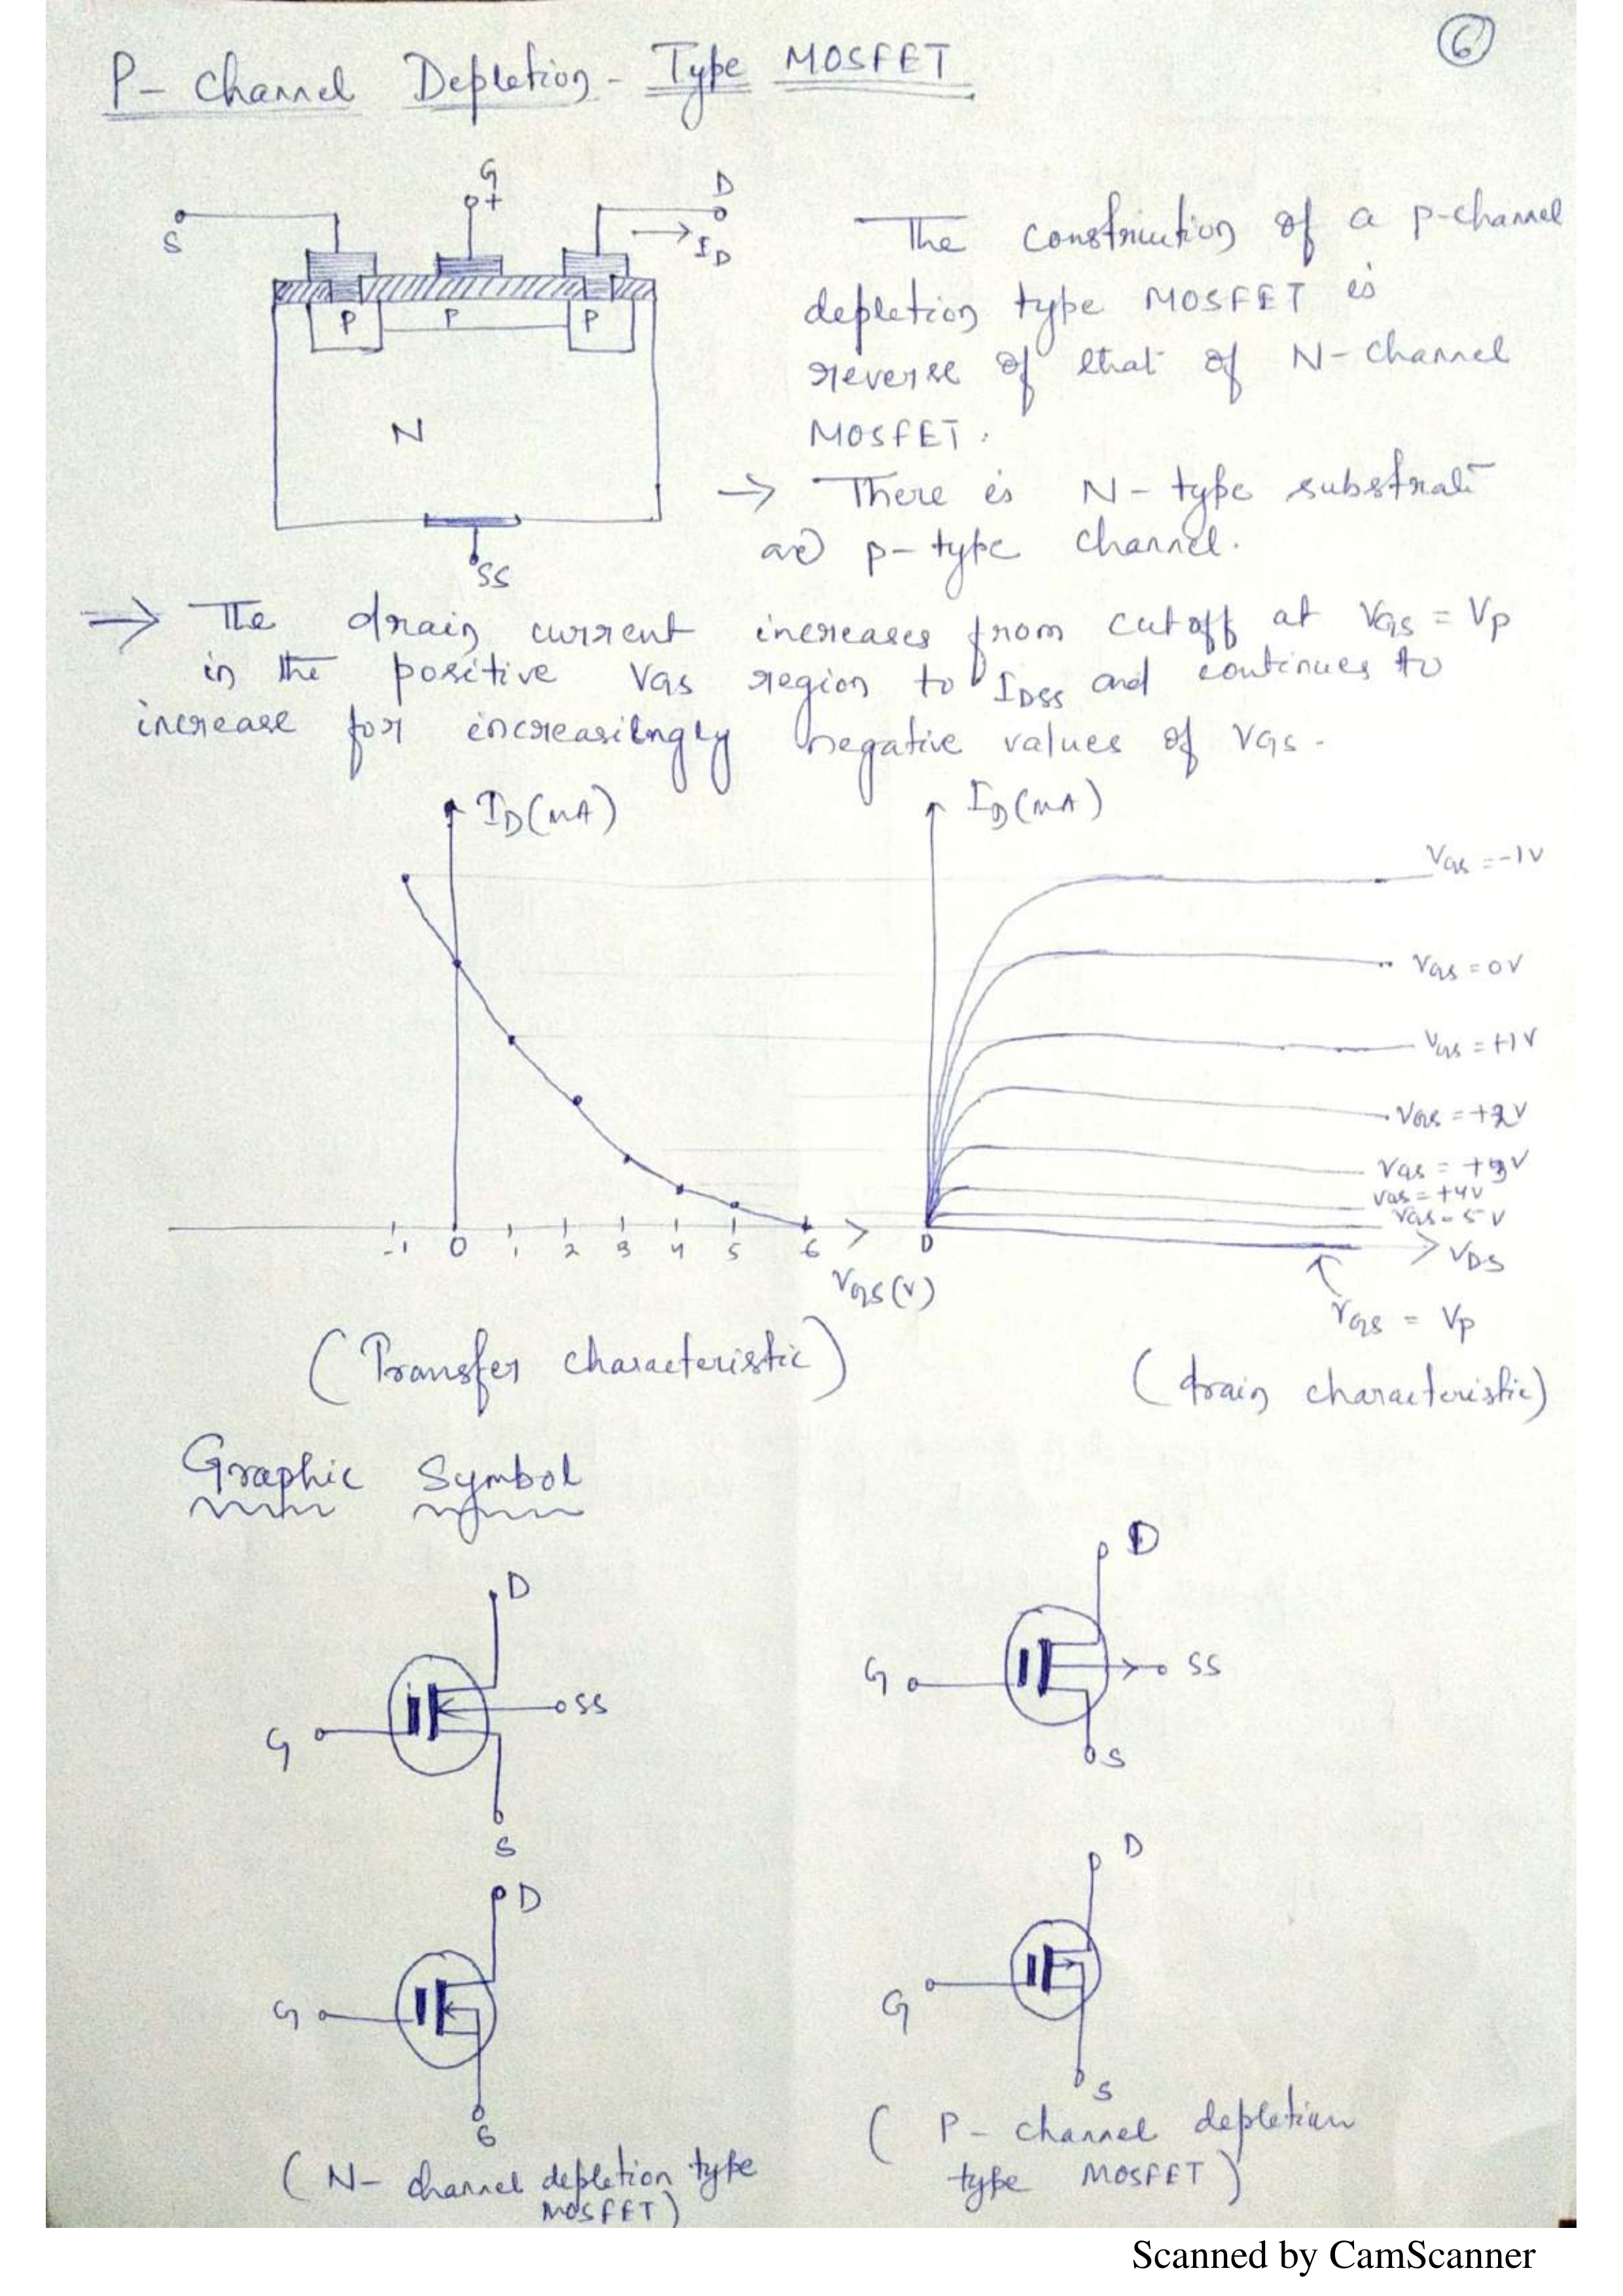 6
P- channel Depletion- Type MOSFET
G
S
+
D
ID
P P P
N
SS
The construction of a p-channel
depletion type MOSFET is
reverse of that of N-channel
MOSFET.
→ There is N-type substrate
and p-type channel.
→ The drain current increases from cutoff at VGS = Vp
in the positive VGS region to IDSS and continues to
increase for increasilngly negative values of VGS.
ID(mA)
-1 0 1 2 3 4 5 6
VGS(V)
(Transfer characteristic)
ID(mA)
VGS = -1V
VGS = 0V
VGS = +1V
VGS = +2V
VGS = +3V
VGS = +4V
VGS = 5V
0
VDS
VGS = Vp
(drain characteristic)
Graphic Symbol
D
G
SS
S
D
G
SS
S
D
G
S
(N- channel depletion type
MOSFET)
D
G
S
( P- channel depletion
type MOSFET)
Scanned by CamScanner